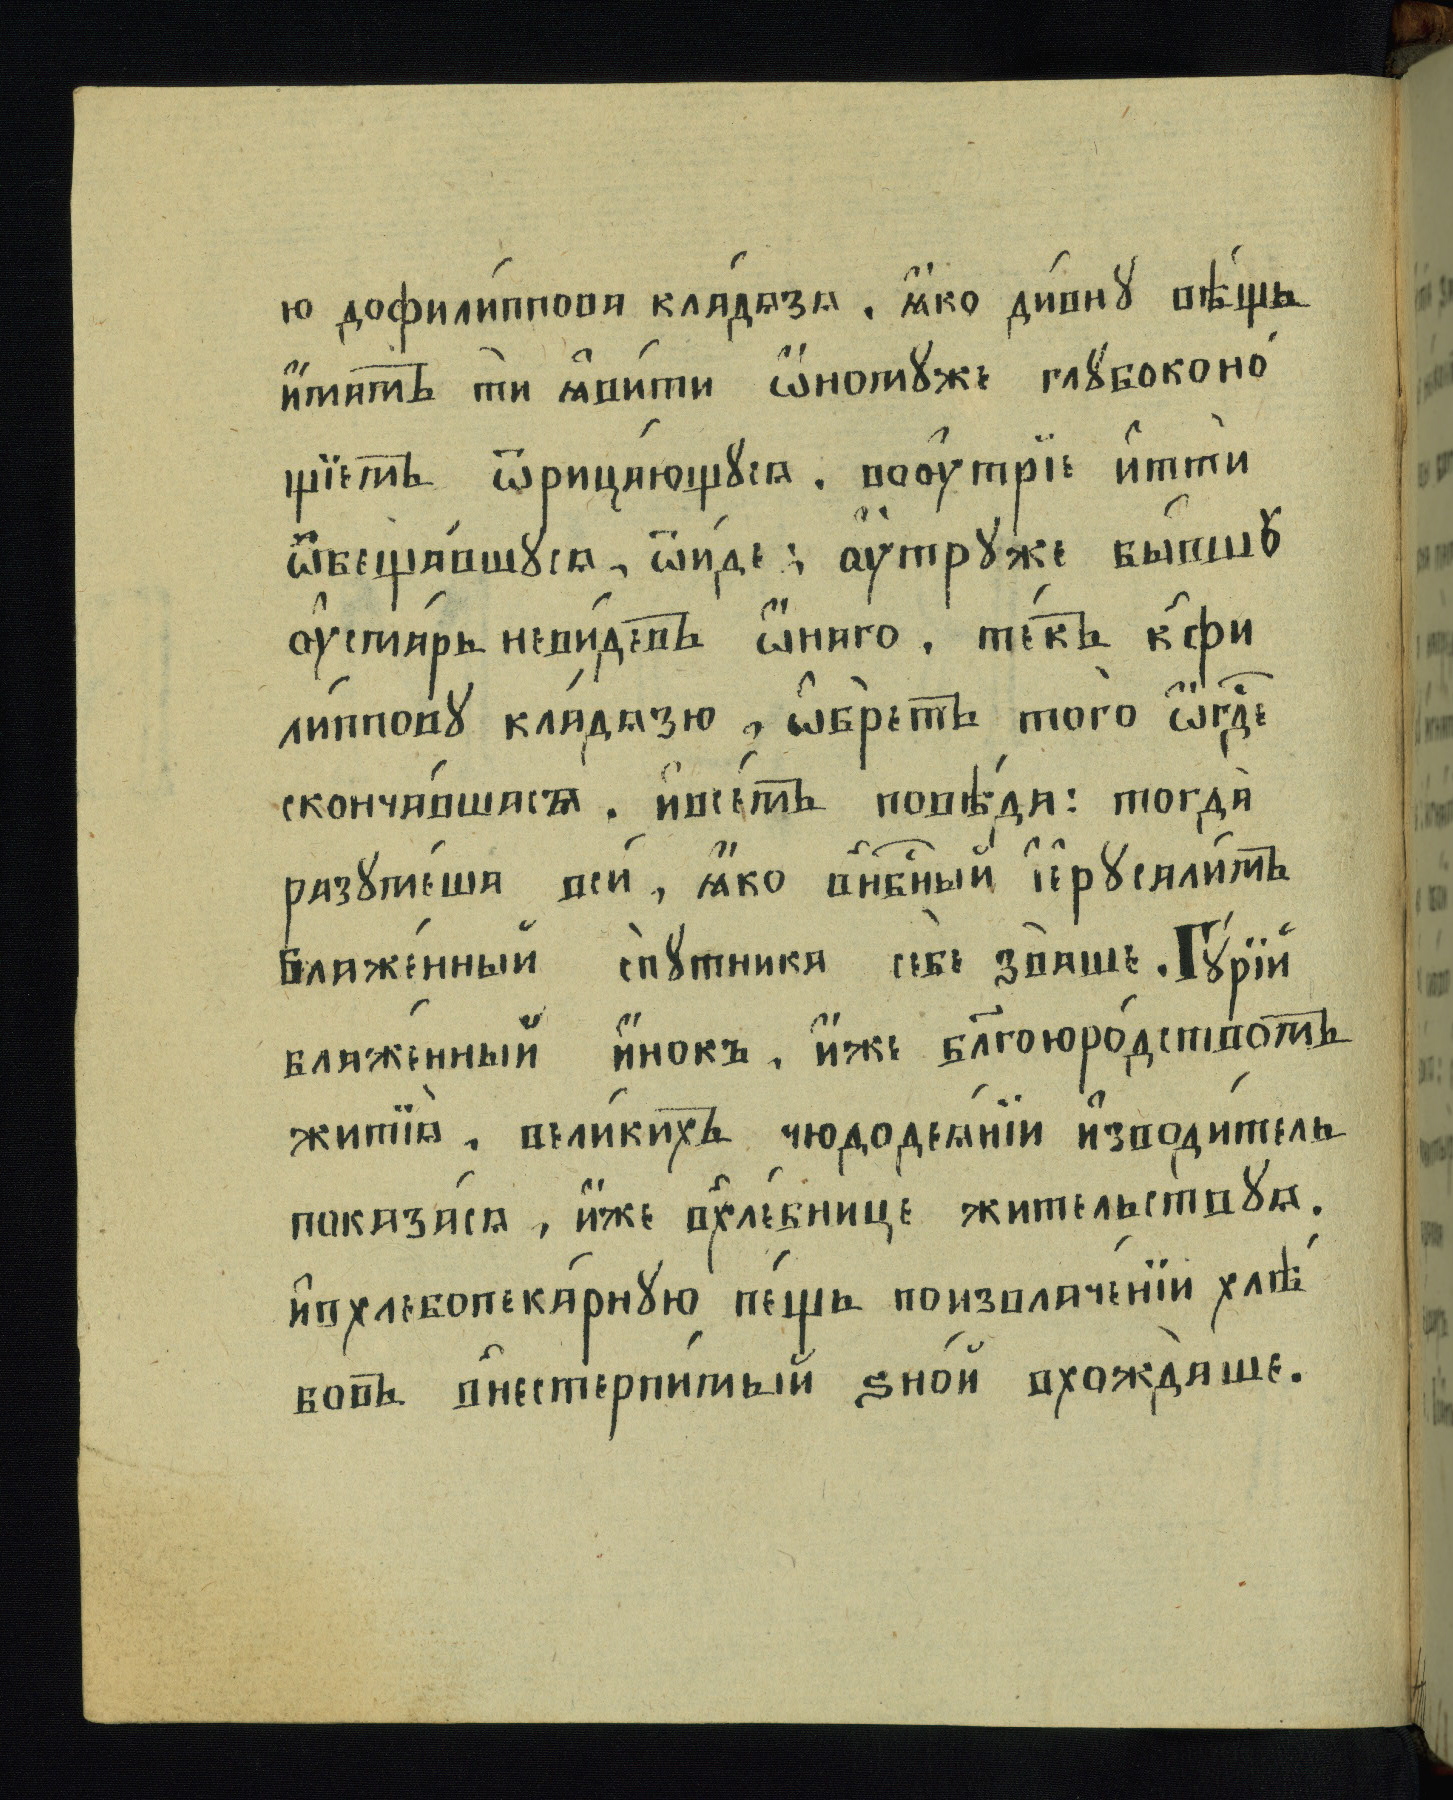 ю дофили́ппова кла́дѧзѧ. ꙗ҆́ко ди́внꙋ вѣ́щь
и҆́мамъ тѝ ꙗ҆ви́ти ѻ҆́номꙋже глꙋбоконо́
щїемъ ѿрица́ющꙋсѧ. вооу҆трїе и҆ттѝ
ѡ҆беща́вшꙋсѧ, ѿи́де; оу҆́трꙋже бы́вшꙋ
оу҆ста́рь неви́девъ ѻ҆́наго. те́къ к̾фи
ли́пповꙋ кла́дѧзю, ѡ҆брѐтъ того̀ ѡ҆́г҃дѣ
сконча́вшасѧ. и҆все́мъ повѣ́да: тогда̀
разꙋме́ша всѝ, ꙗ҆́ко в̾нб҃ный і҆ерꙋсали́мъ
блаже́нный спꙋтника себе зва̀ше. Гꙋ́рїй
блаже́нный и҆́нокъ. и҆́же бл҃гоюро́дствомъ
житїѧ̀. вели́кихъ чюдодеѧ́нїи и҆зводи́тель
показа́сѧ, и҆́же в̾хле́бнице жительствꙋѧ.
и҆вхлебопека́рнꙋю пе́щь поизвлаче́нїи хлѣ́
бовъ в̾нестерпи́мый ѕно́й вхожда̀ше.